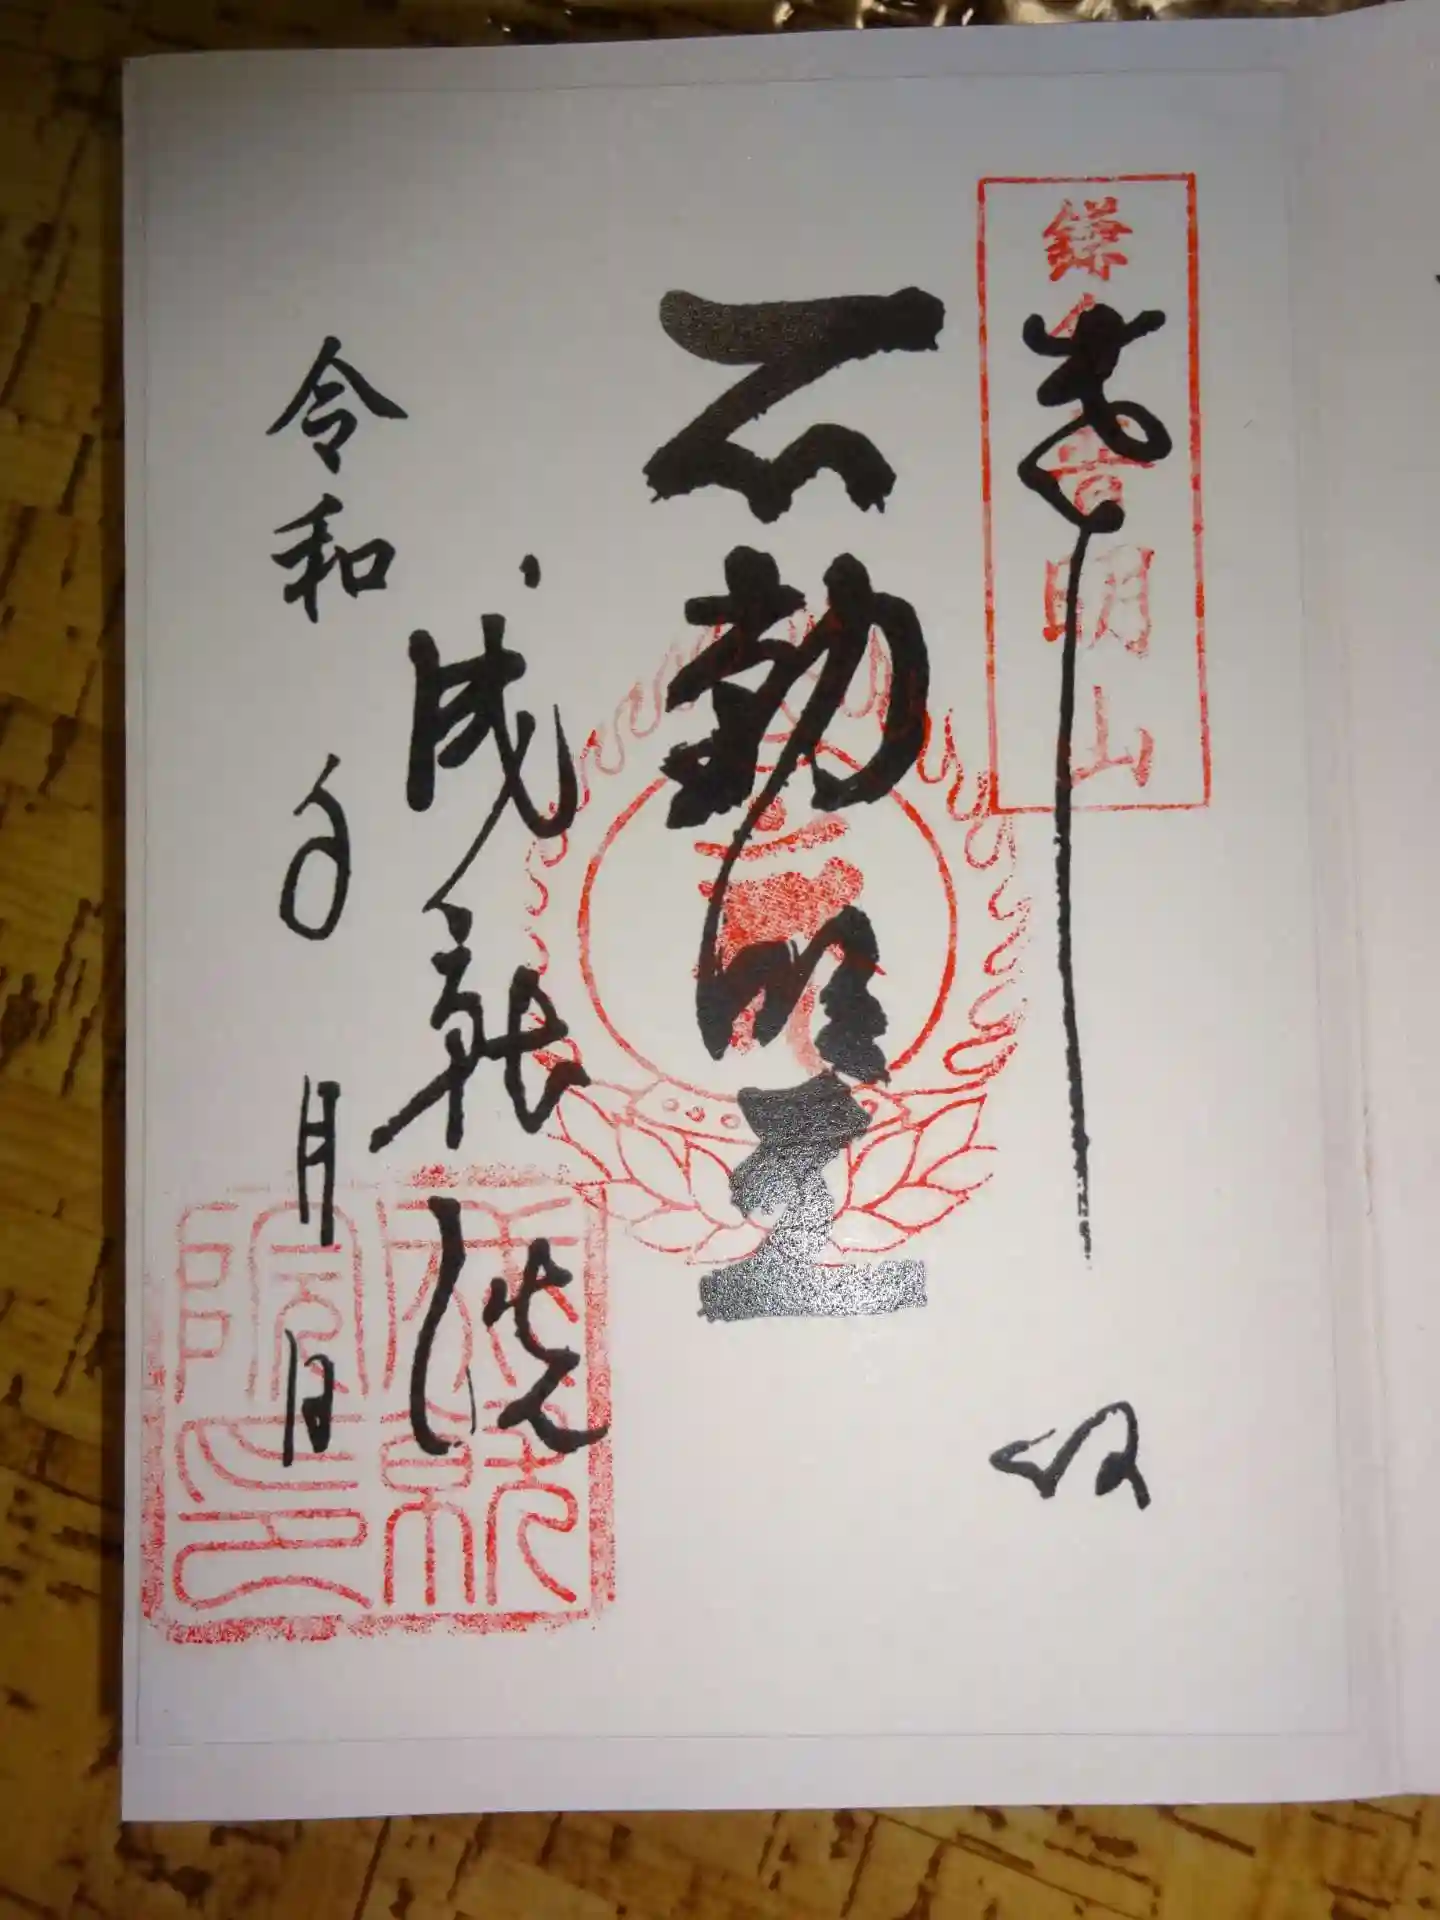 鎌倉普明山
奉拝
不動明王
成就院
令和 年 月 日
成就
院之印